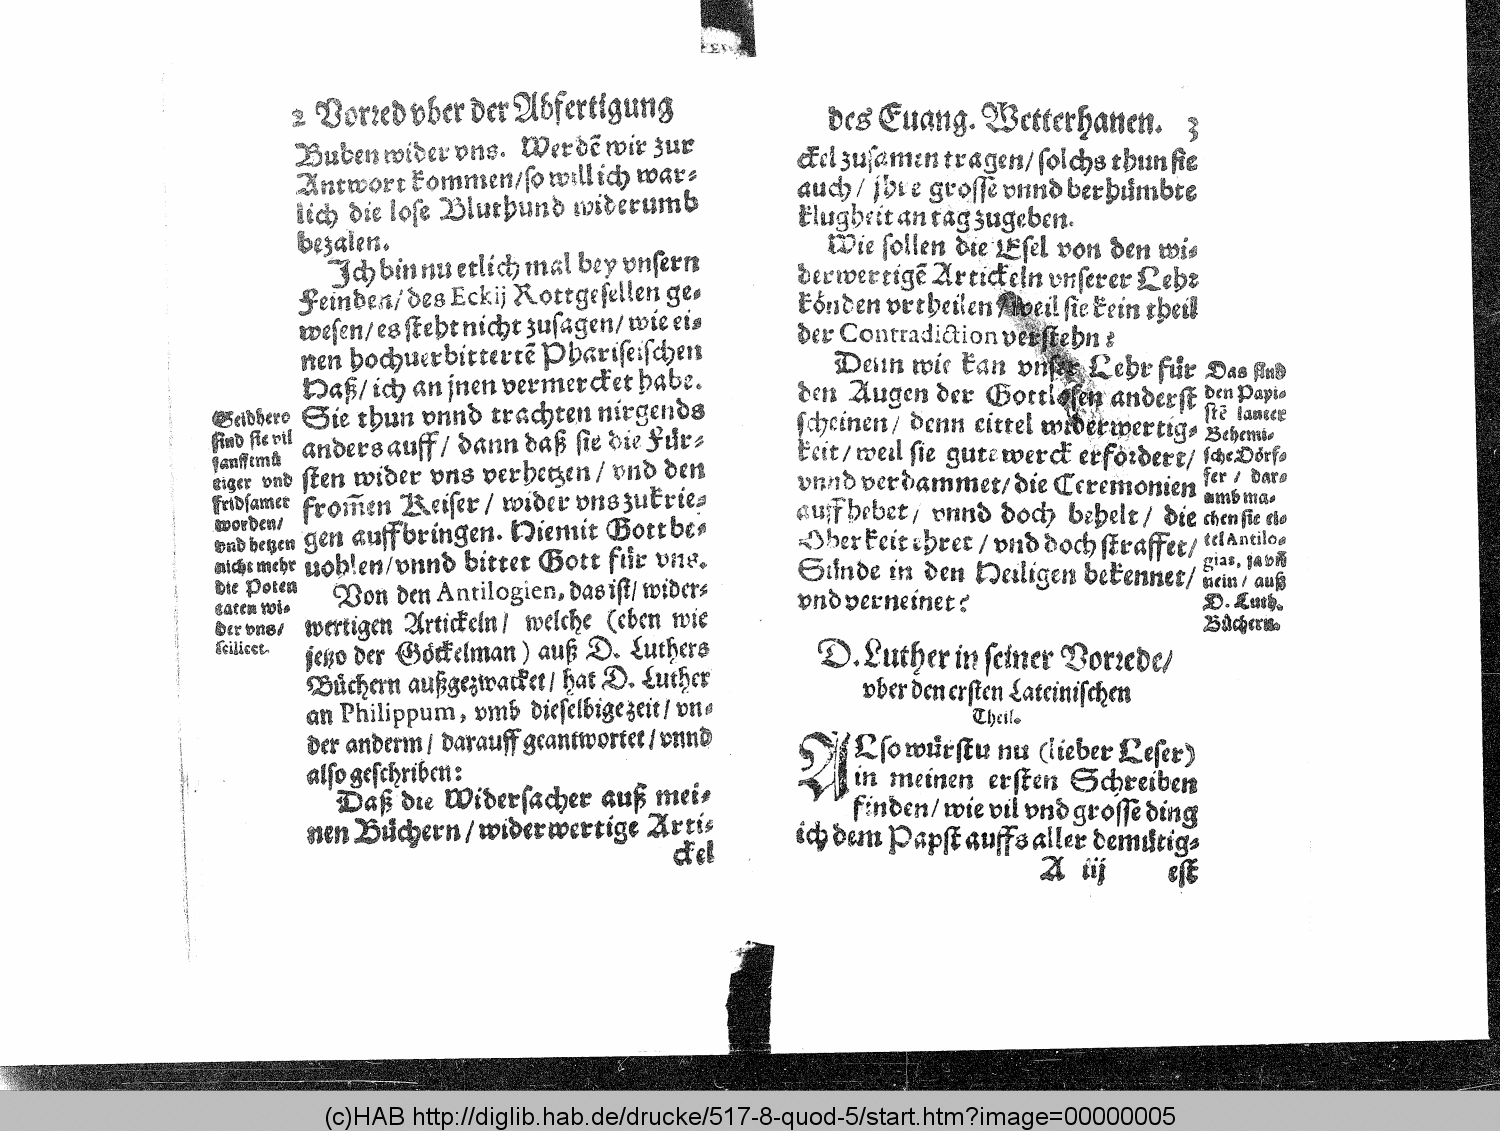 2 Vorred vber der Abfertigung
Buben wider vns. Werdē wir zur
Antwort kommen/ so will ich war⸗
lich die lose Bluthund widerumb
bezalen.
Ich bin nu etlich mal bey vnsern
Feinden/ des Eckij Rottgesellen ge⸗
wesen/ es steht nicht zusagen/ wie ei⸗
nen hochuerbittertē Phariseischen
Haß/ ich an jnen vermercket habe.
Sie thun vnnd trachten nirgends
anders auff/ dann daß sie die Für⸗
sten wider vns verhetzen/ vnd den
from̄en Keiser/ wider vns zukrie⸗
gen auffbringen. Hiemit Gott be⸗
uohlen/ vnnd bittet Gott für vns.
Von den Antilogien, das ist/ wider⸗
wertigen Artickeln/ welche (eben wie
jetzo der Göckelman) auß D. Luthers
Büchern außgezwacket/ hat D. Luther
an Philippum, vmb dieselbige zeit/ vn⸗
der anderm/ darauff geantwortet/ vnnd
also geschriben:
Daß die Widersacher auß mei⸗
nen Büchern/ widerwertige Arti⸗
ckel
Seidhero
sind sie vil
sanfftmü
tiger vnd
fridsamer
worden/
vnd hetzen
nicht mehr
die Poten
taten wi⸗
der vns/
scilicet.
des Euang. Wetterhanen. 3
ckel zusamen tragen/ solchs thun sie
auch/ jhre grosse vnnd berhümbte
klugheit an tag zugeben.
Wie sollen die Esel von den wi⸗
derwertigē Artickeln vnserer Lehr
könden vrtheilen/ weil sie kein theil
der Contradiction verstehn?
Denn wie kan vnser Lehr für
den Augen der Gottlosen anderst
scheinen/ denn eittel widerwertig⸗
keit/ weil sie gute werck erfordert/
vnnd verdammet/ die Ceremonien
auffhebet/ vnnd doch behelt/ die
Oberkeit ehret/ vnd doch straffet/
Sünde in den Heiligen bekennet/
vnd verneinet?
Das sind
den Papi⸗
stē lauter
Behemi⸗
sche Dörf⸗
fer/ dar⸗
umb ma⸗
chen sie ei⸗
tel Antilo⸗
gias, ja vn̄
nein/ auß
D. Luth.
Büchern.
D. Luther in seiner Vorrede/
vber den ersten Lateinischen
Theil.
ALso würstu nu (lieber Leser)
in meinen ersten Schreiben
finden/ wie vil vnd grosse ding
ich dem Papst auffs aller demütig⸗
A iij est
(c)HAB http://diglib.hab.de/drucke/517-8-quod-5/start.htm?image=00000005